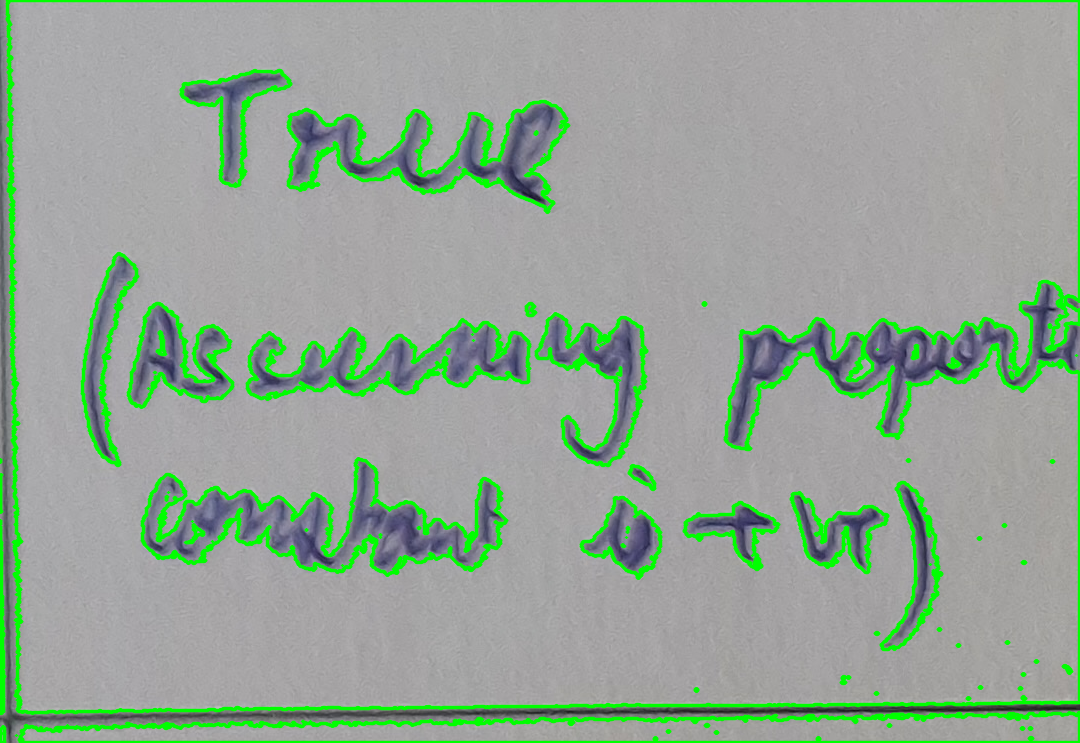 True
(Assuming proporti
constant is +ve)